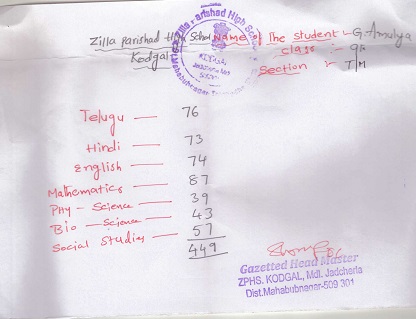 Zilla Parishad High School Name of The student :- G. Amulya
Kodgal
class :- 9th
Section :- T/M
Telugu — 76
Hindi — 73
English — 74
Mathematics — 87
Phy - Science — 39
Bio - Science — 43
Social Studies — 57
449
Gazetted Head Master
ZPHS. KODGAL, Mdl. Jadcherla
Dist.Mahabubnagar-509 301